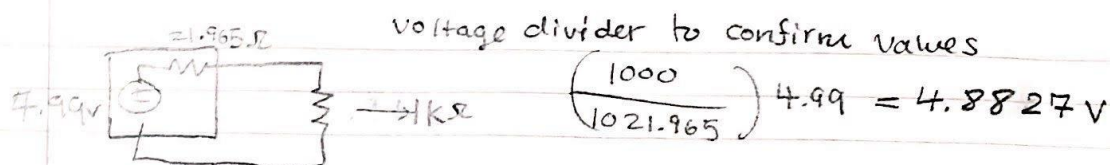 voltage divider to confirm values
21.965Ω
4.99v
→1kΩ
(1000/1021.965) 4.99 = 4.8827 V